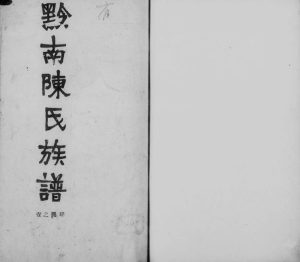 黔南陳氏族譜